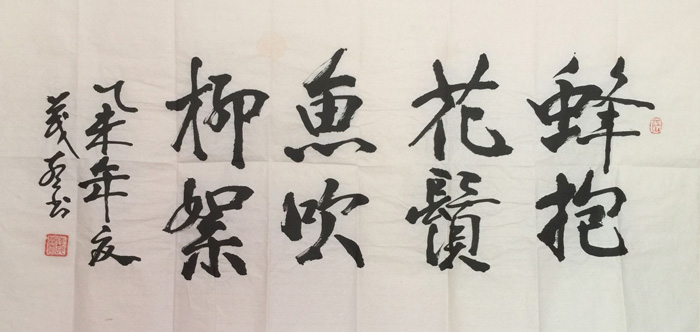 蜂抱
花鬚
魚吹
柳絮
乙未年夏
義君书